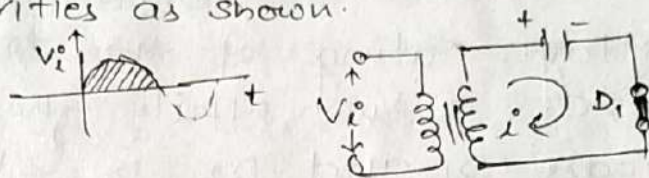 rities as shown.
Vi
t
Vi
+ -
i
D1